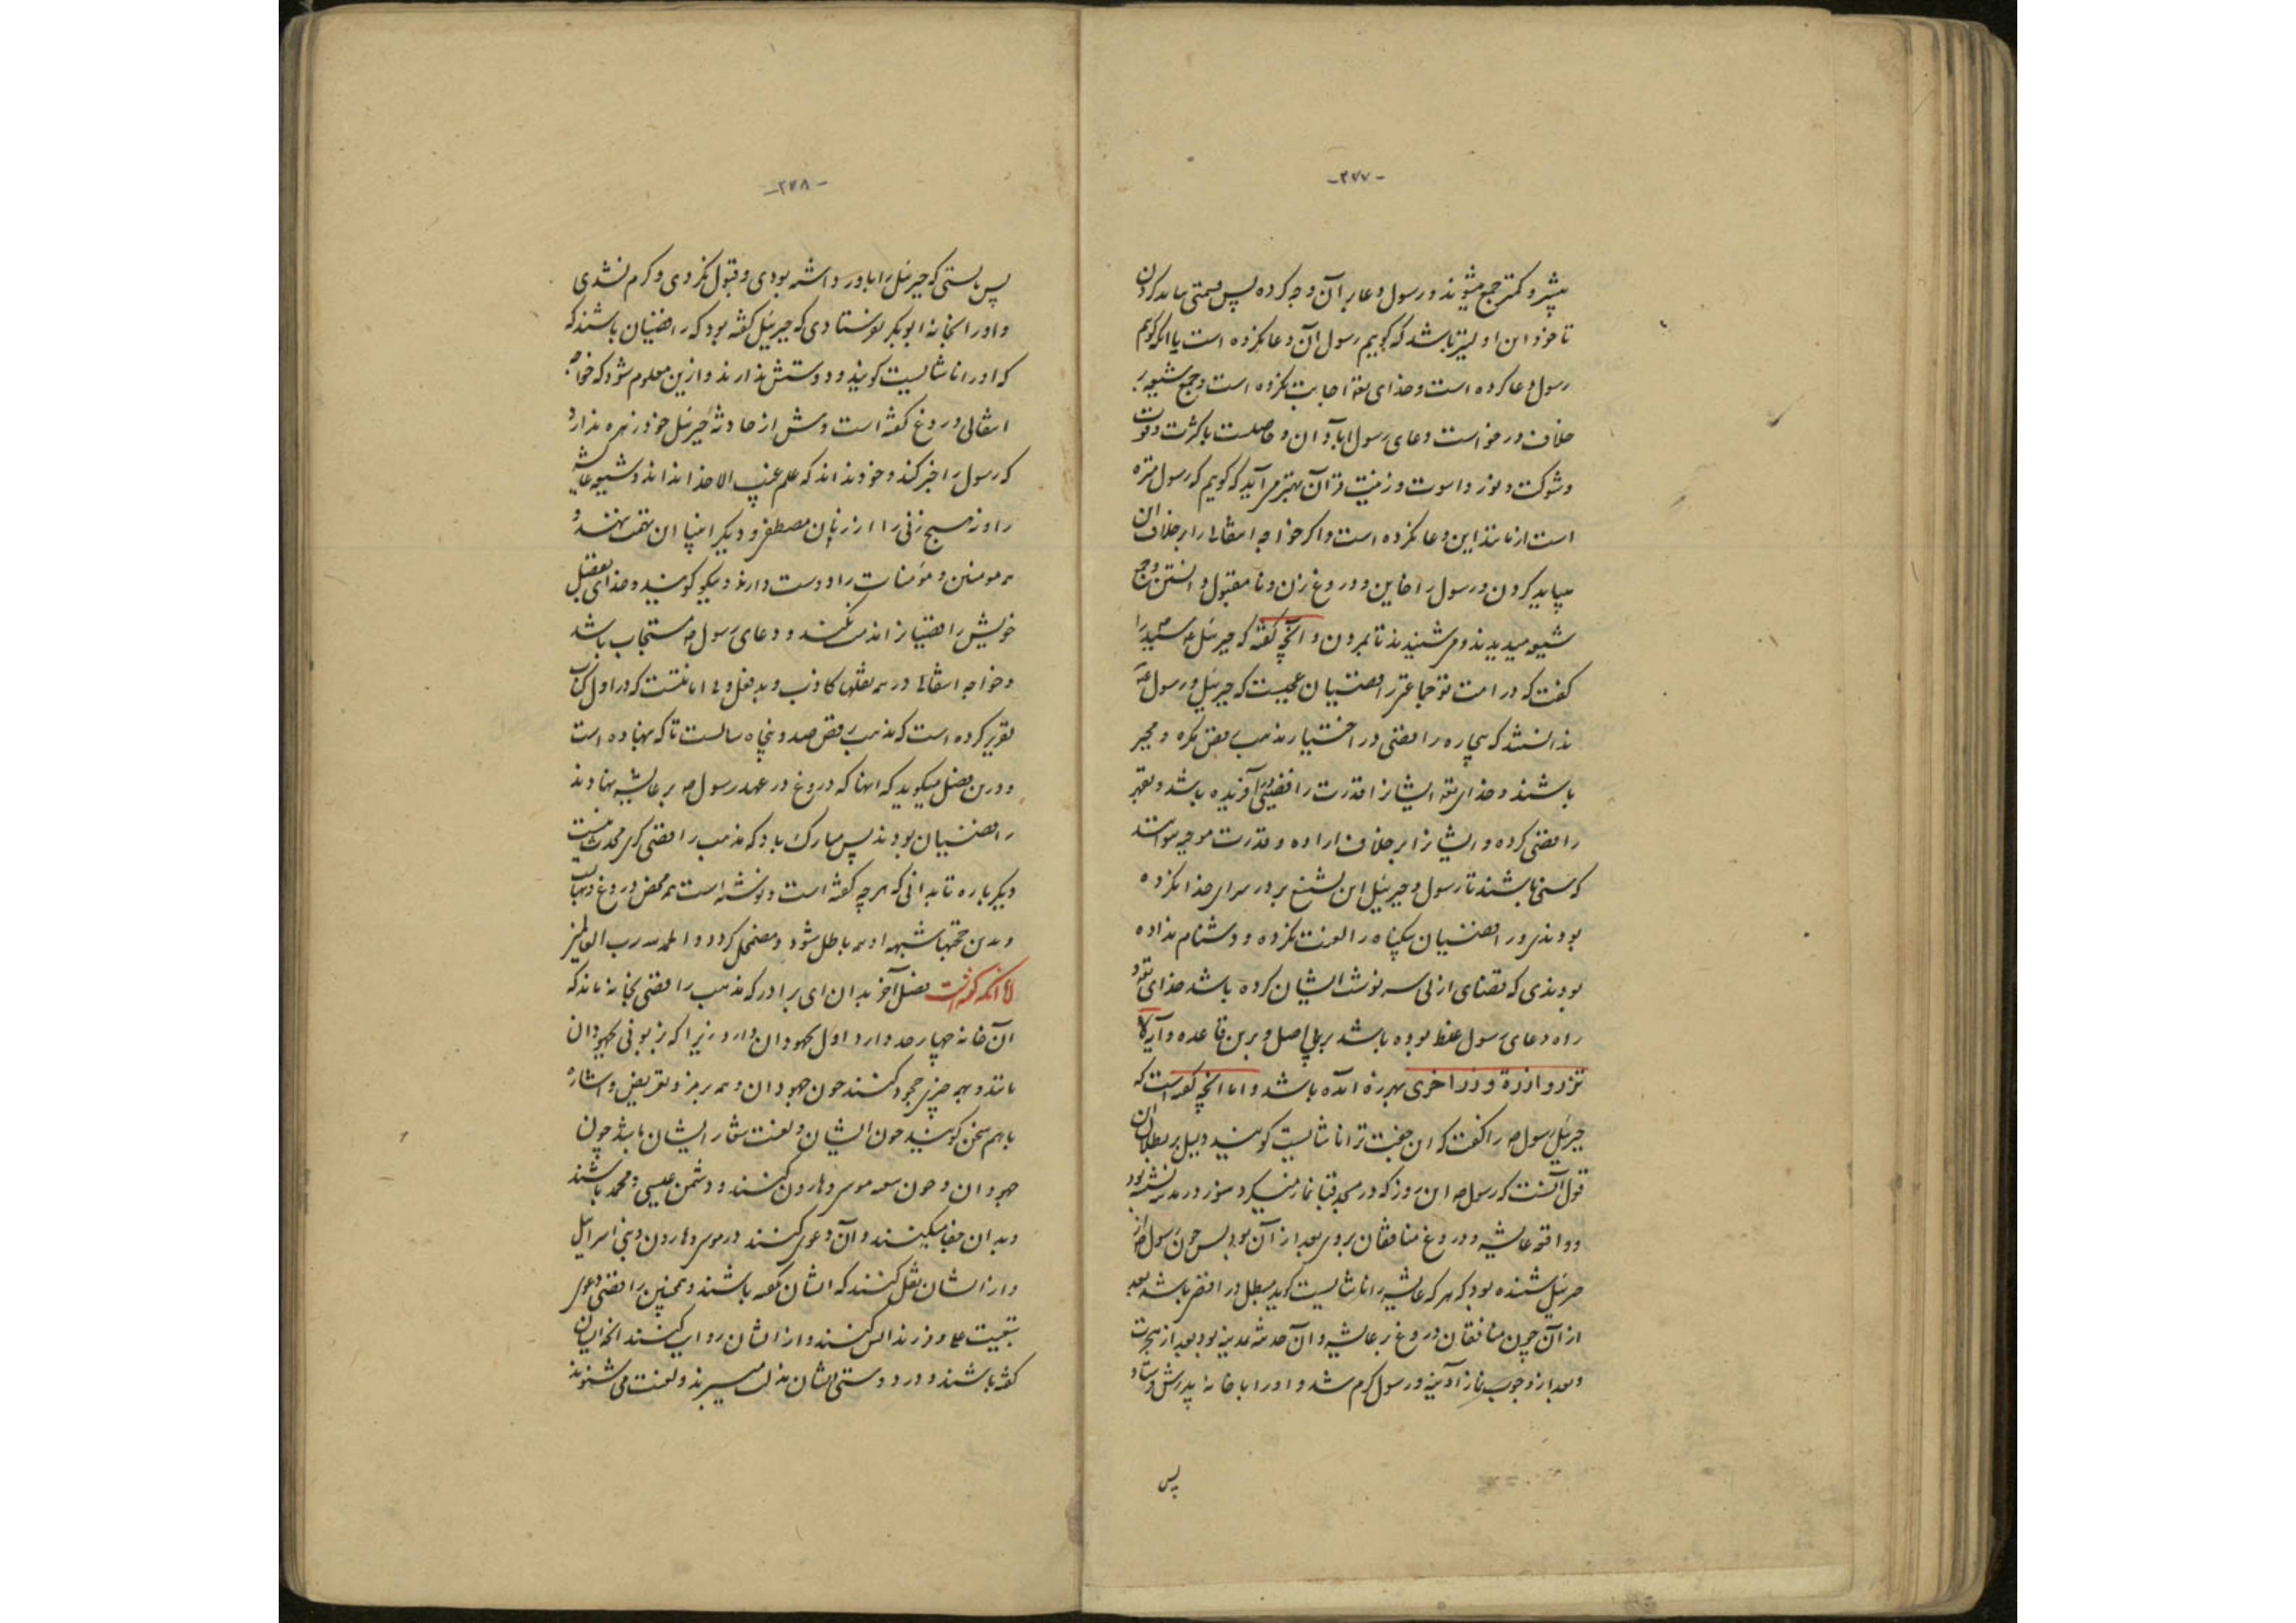 -۳۷۷-
بیشتر و کمتر جمع میشوند و رسول دعا بر آن وجه کرده پس قسمتی بباید کردن
تا خود این اولیتر باشد که گویم رسول آن دعا نکرده است یا آنکه گویم
رسول دعا کرده است و خدای تعه اجابت نکرده است و جمع شیعه بر
خلاف درخواست و دعای رسول آبادان و حاصلست با کثرت و قوت
و شوکت و نور و زینت قرآن بهتر می آید که گویم که رسول منزه
است از مانند این دعا نکرده است و اگر خواجه انتقالی را بر خلاف آن
میباید کردن و رسول را خاین و دروغ زن و نامقبول دانستن وجه
شیعه میدیدند و می شنیدند تا بمردن و آنچه گفته که جبرئیل ع م سید را
گفت که در امت تو جماعتی رافضیان عجبست که جبرئیل و رسول
ندانستند که بیچاره رافضی در اختیار مذهب رفض مکره و مجبر
باشند و خدای تعه ایشانرا قدرت رافضیی آفریده باشد و بقهر
رافضی کرده و ایشانرا بر خلاف اراده و قدرت موجبه نتوانند
که سنی باشند تا رسول و جبرئیل این تشنیع بر در سرای خدا نکرده
بودندی و رافضیان بیگناه را لعنت نکرده و دشنام نداده
بودندی که قضای ازلی سرنوشت ایشان کرده باشد خدای تعه و
راه دعای رسول غلط بوده باشد برین اصل و برین قاعده و آیه لا
تزر وازرة وزر اخری بهرزه آمده باشد و اما آنچه گفته است که
جبرئیل رسول ص را گفت که این جفت ترا ناشایست گویند دلیل بر بطلان این
قول آنست که رسول ص این روز که در مسجد قبا نماز میکرد هنوز در مدینه نشده بود
و واقعه عایشه و دروغ منافقان بر وی بعد از آن بود پس چون رسول ص از
جبرئیل شنیده بود که هر که عایشه را ناشایست گوید مبطل و رافضی باشد بعد
از آن چون منافقان دروغ بر عایشه و آن حدیث مدینه بود بعد از هجرت
و بعد از وجوب نماز آدینه و رسول گرم شد و او را با خانهٔ پدرش فرستاد
پس
-۳۷۸-
پس بایستی که جبرئیل را باور داشته بودی و قبول نکردی و گرم نشدی
و او را بخانه ابوبکر نفرستادی که جبرئیل گفته بود که رافضیان باشند که
که او را ناشایست گویند و دوستش ندارند و ازین معلوم شود که خواجه
انتقالی دروغ گفته است و پیش از حادثه جبرئیل خود زهره ندارد
که رسول را خبر کند و خود نداند که علم غیب الا خدا نداند و شیعه عایشه
را و نه هیچ زنی را از زنان مصطفی و دیگر انبیا ان تهمت ننهند و
همه مومنین و مؤمنات را دوست دارند و نیکو گویند و خدای بعقل
خویش را اختیار مذمت نکنند و دعای رسول ص مستجاب باشد
و خواجه انتقالی در همه نقلها کاذب و بدفعل و بی امانتست که در اول کتاب
تقریر کرده است که مذهب رفض صد و پنجاه سالست تا که بنهاده است
و درین فصل میگوید که اینها که دروغ در عهد رسول ص بر عایشه نهادند
رافضیان بودند پس مبارک باد که مذهب رافضی گری محدث نیست
دیگر باره تا بدانی که هر چه گفته است و نوشته است همه محض دروغ و بهتانست
و بدین حجتها شبهه او همه باطل شود و مضمحل گردد و الحمد لله رب العالمین
اما آنکه گفته است فصل آخر بدان ای برادر که مذهب رافضی بخانه ماند که
آن خانه چهار حد دارد اول بجهودان دارد زیرا که بزبونی بجهودان
مانند و بهر چیزی جحود کنند چون جهودان و همه برمز و تعریض و اشاره
باهم سخن گویند چون ایشان و لعنت شعار ایشان باشد چون
جهودان و چون همه موسی و هارون کنند و دشمن عیسی و محمد باشند
و بدان جفا میکنند و آن دعوی کنند در موسی و هارون و بنی اسرائیل
و از ایشان نقل کنند که ایشان نگفته باشند و همچنین رافضی دعوی
تبعیت علی و فرزندانش کنند و از ایشان روایت کنند آنچه ایشان
گفته باشند و در دوستی ایشان بذلت میسپرند و لعنت می شنوند